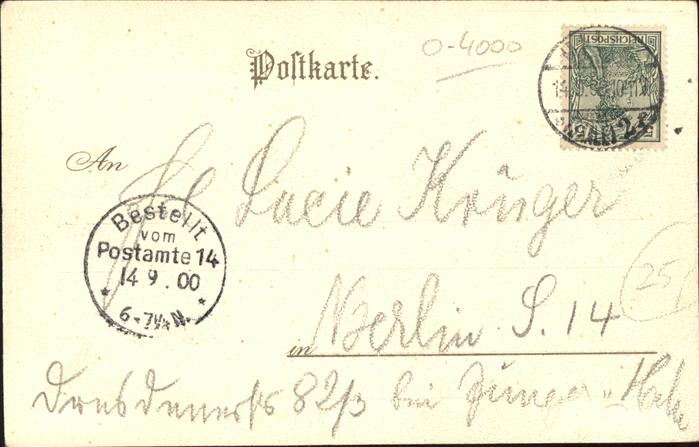 Postkarte.
0-4000
REICHSPOST
5
14.9.
An
Frl Lucie Krüger
Bestellt
vom
Postamte 14
14 9. 00
6-7½N.
25
in Berlin S. 14
Dresdenerstr 82/3 bei